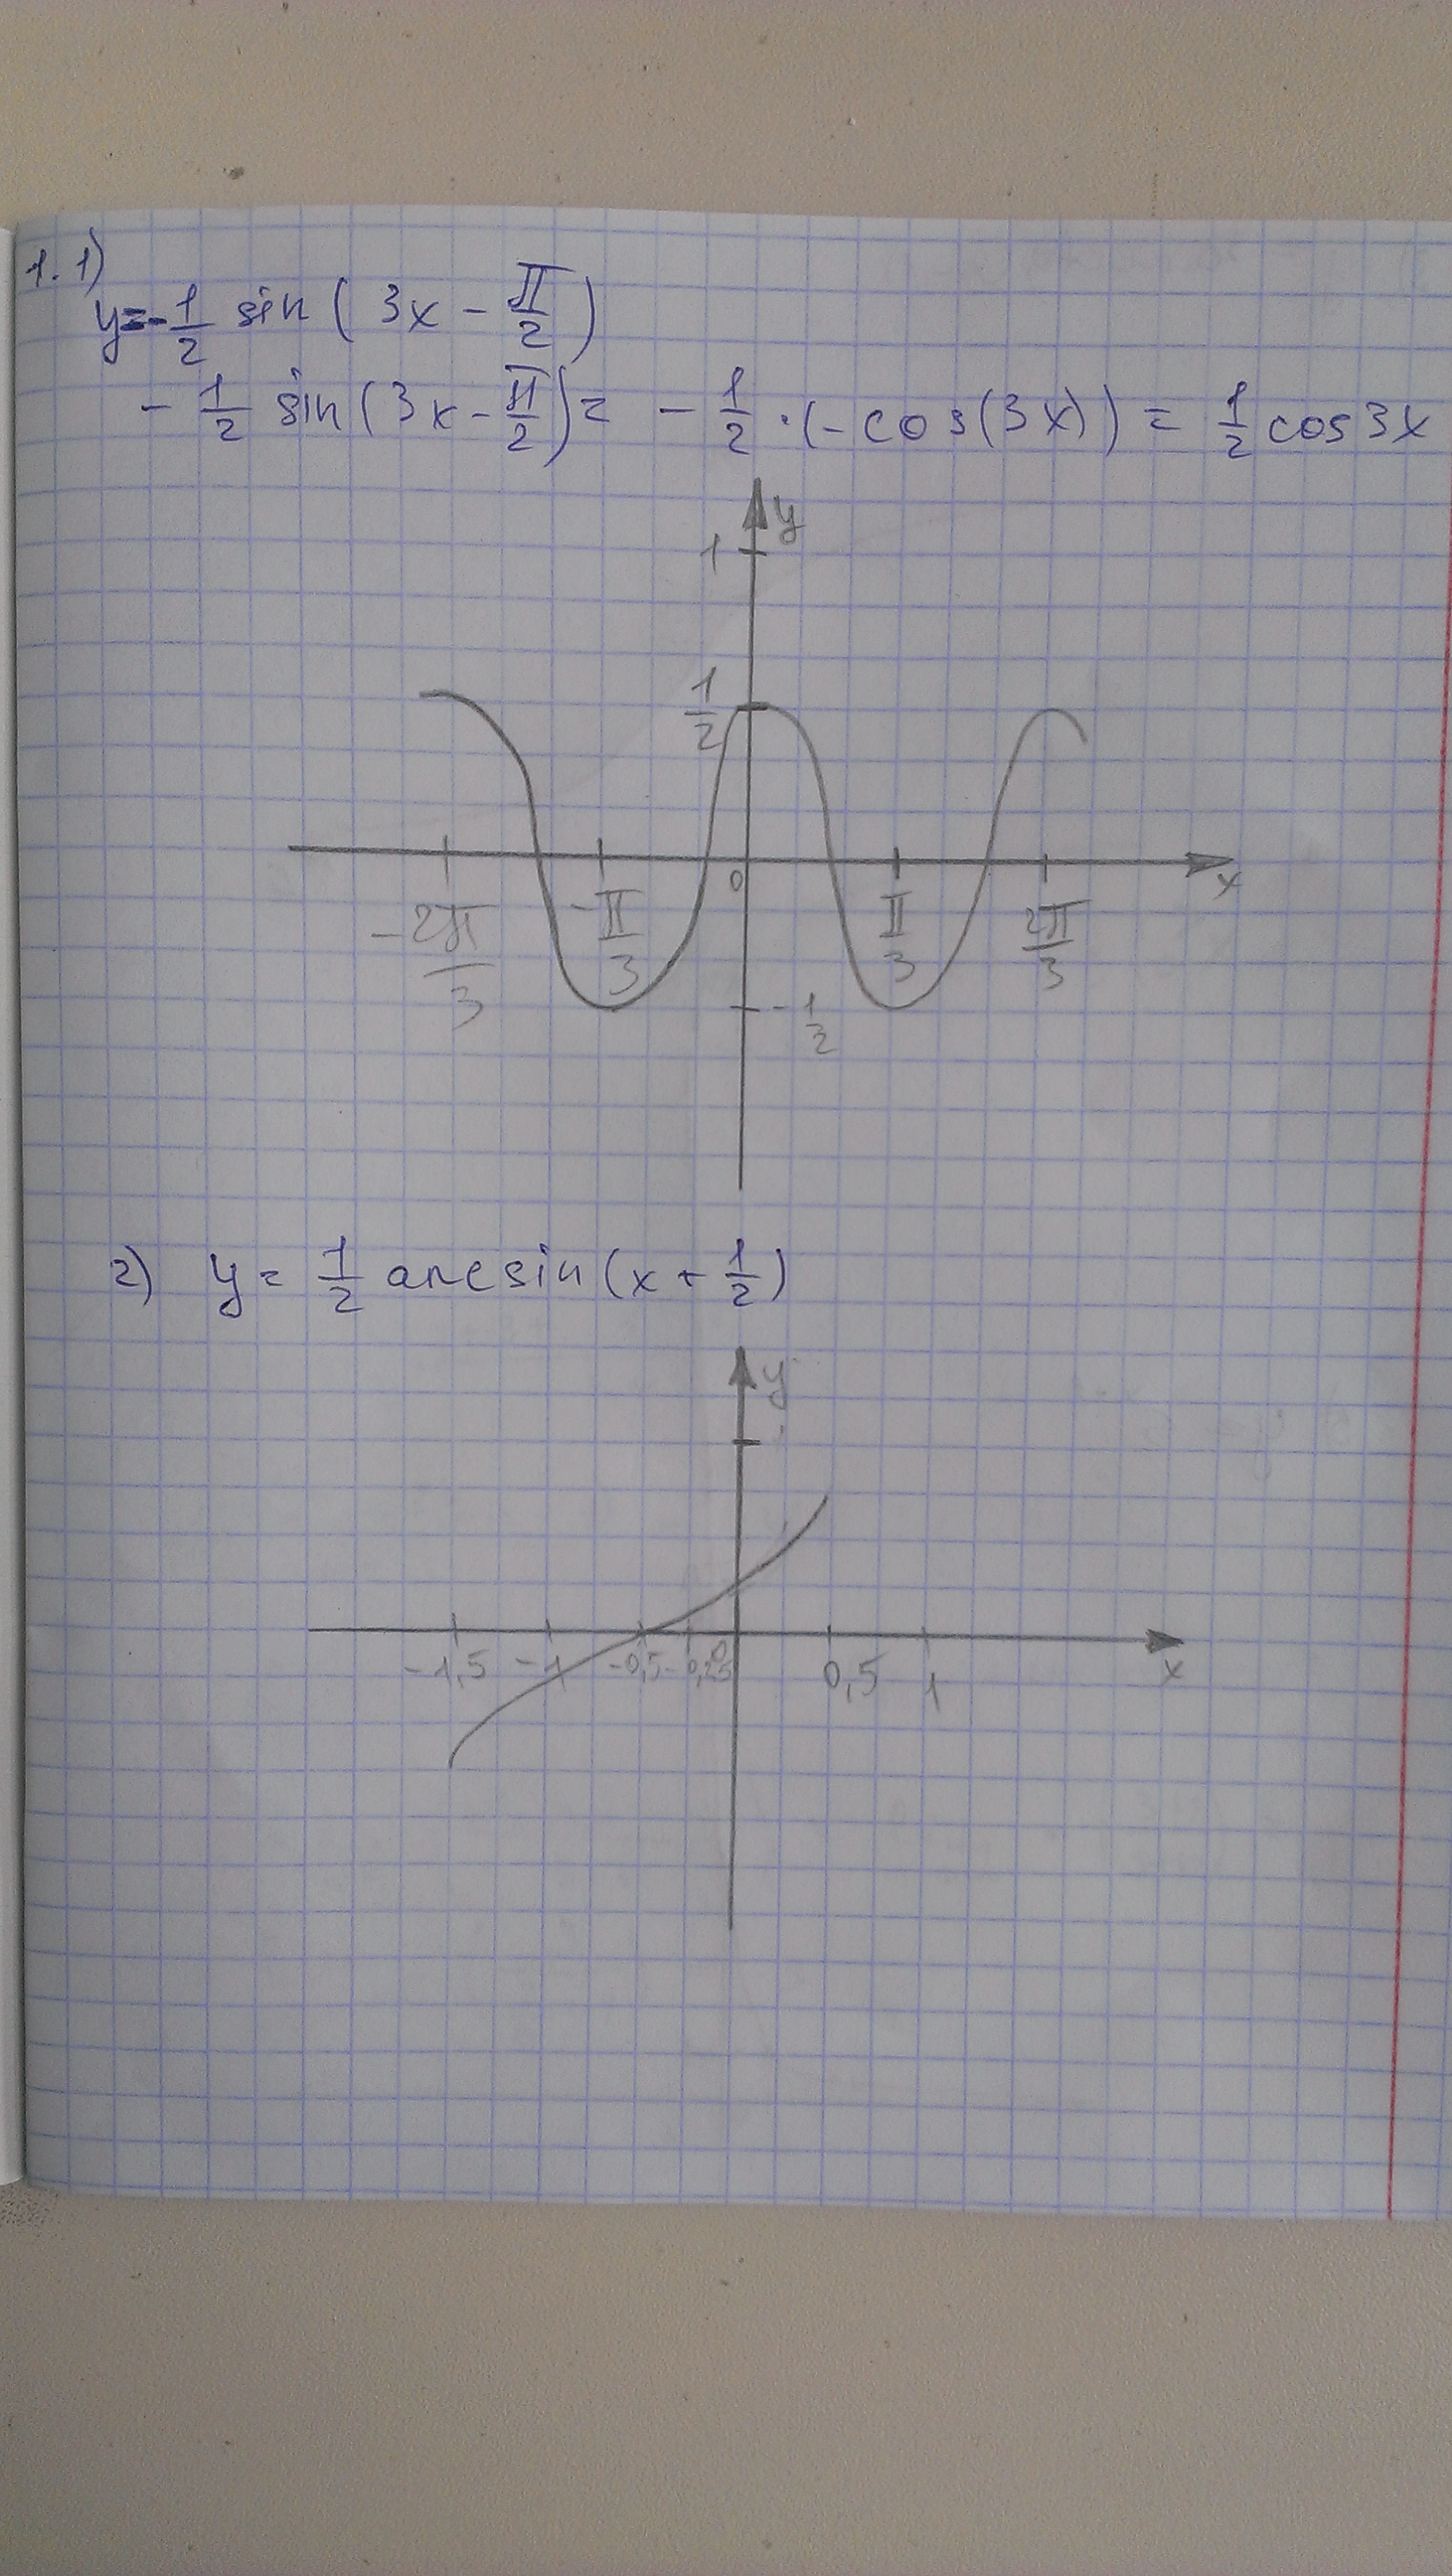 1. 1)
y=-1/2 sin(3x - π/2)
- 1/2 sin(3x - π/2) = - 1/2 · (- cos(3x)) = 1/2 cos3x
y
1
1/2
0
x
-2π/3 -π/3 π/3 2π/3
-1/2
2) y = 1/2 arcsin(x + 1/2)
y
-1,5 -1 -0,5 -0,25 0 0,5 1 x